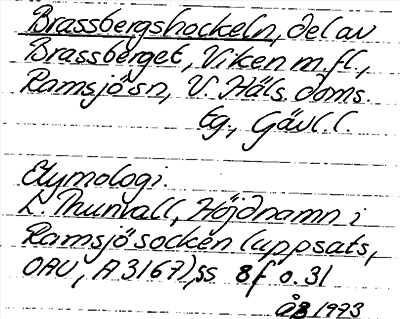 Brassbergshockeln, del av
Brassberget, Viken m.fl.,
Ramsjö sn, V. Häls. doms.
tg., Gävl. l.
Etymologi.
L. Thunvall, Höjdnamn i
Ramsjö socken (uppsats,
OAU, A 3167), ss 8f o. 31
ÅB 1973